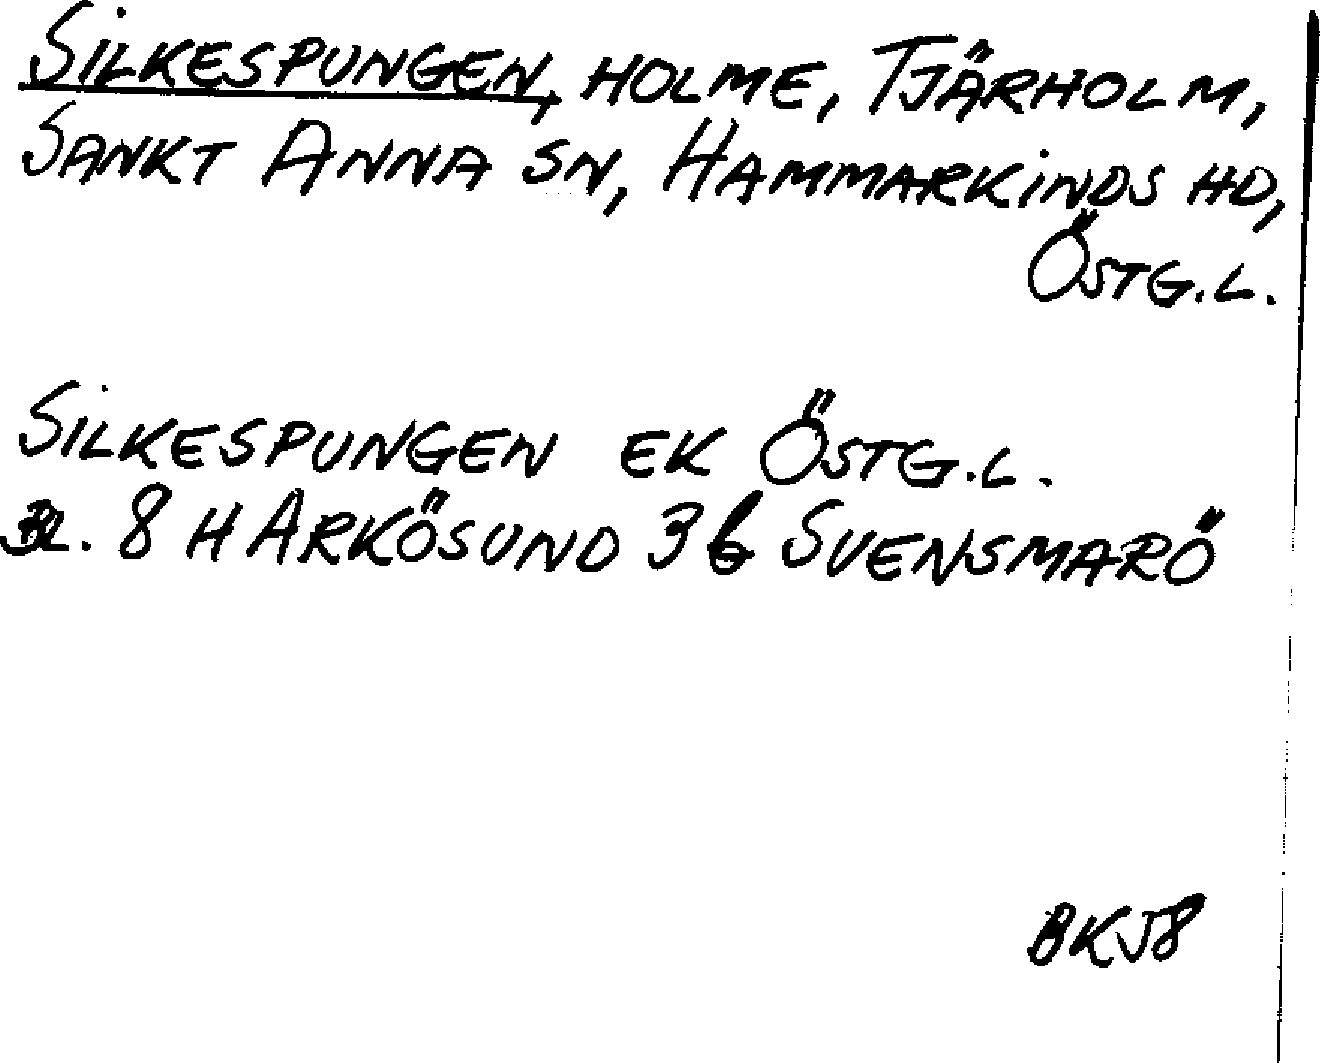 SILKESPUNGEN, HOLME, TJÄRHOLM,
SANKT ANNA SN, HAMMARKINDS HD,
ÖSTG.L.
SILKESPUNGEN EK ÖSTG.L.
BL. 8 H ARKÖSUND 3 b SVENSMARÖ
BKJ8